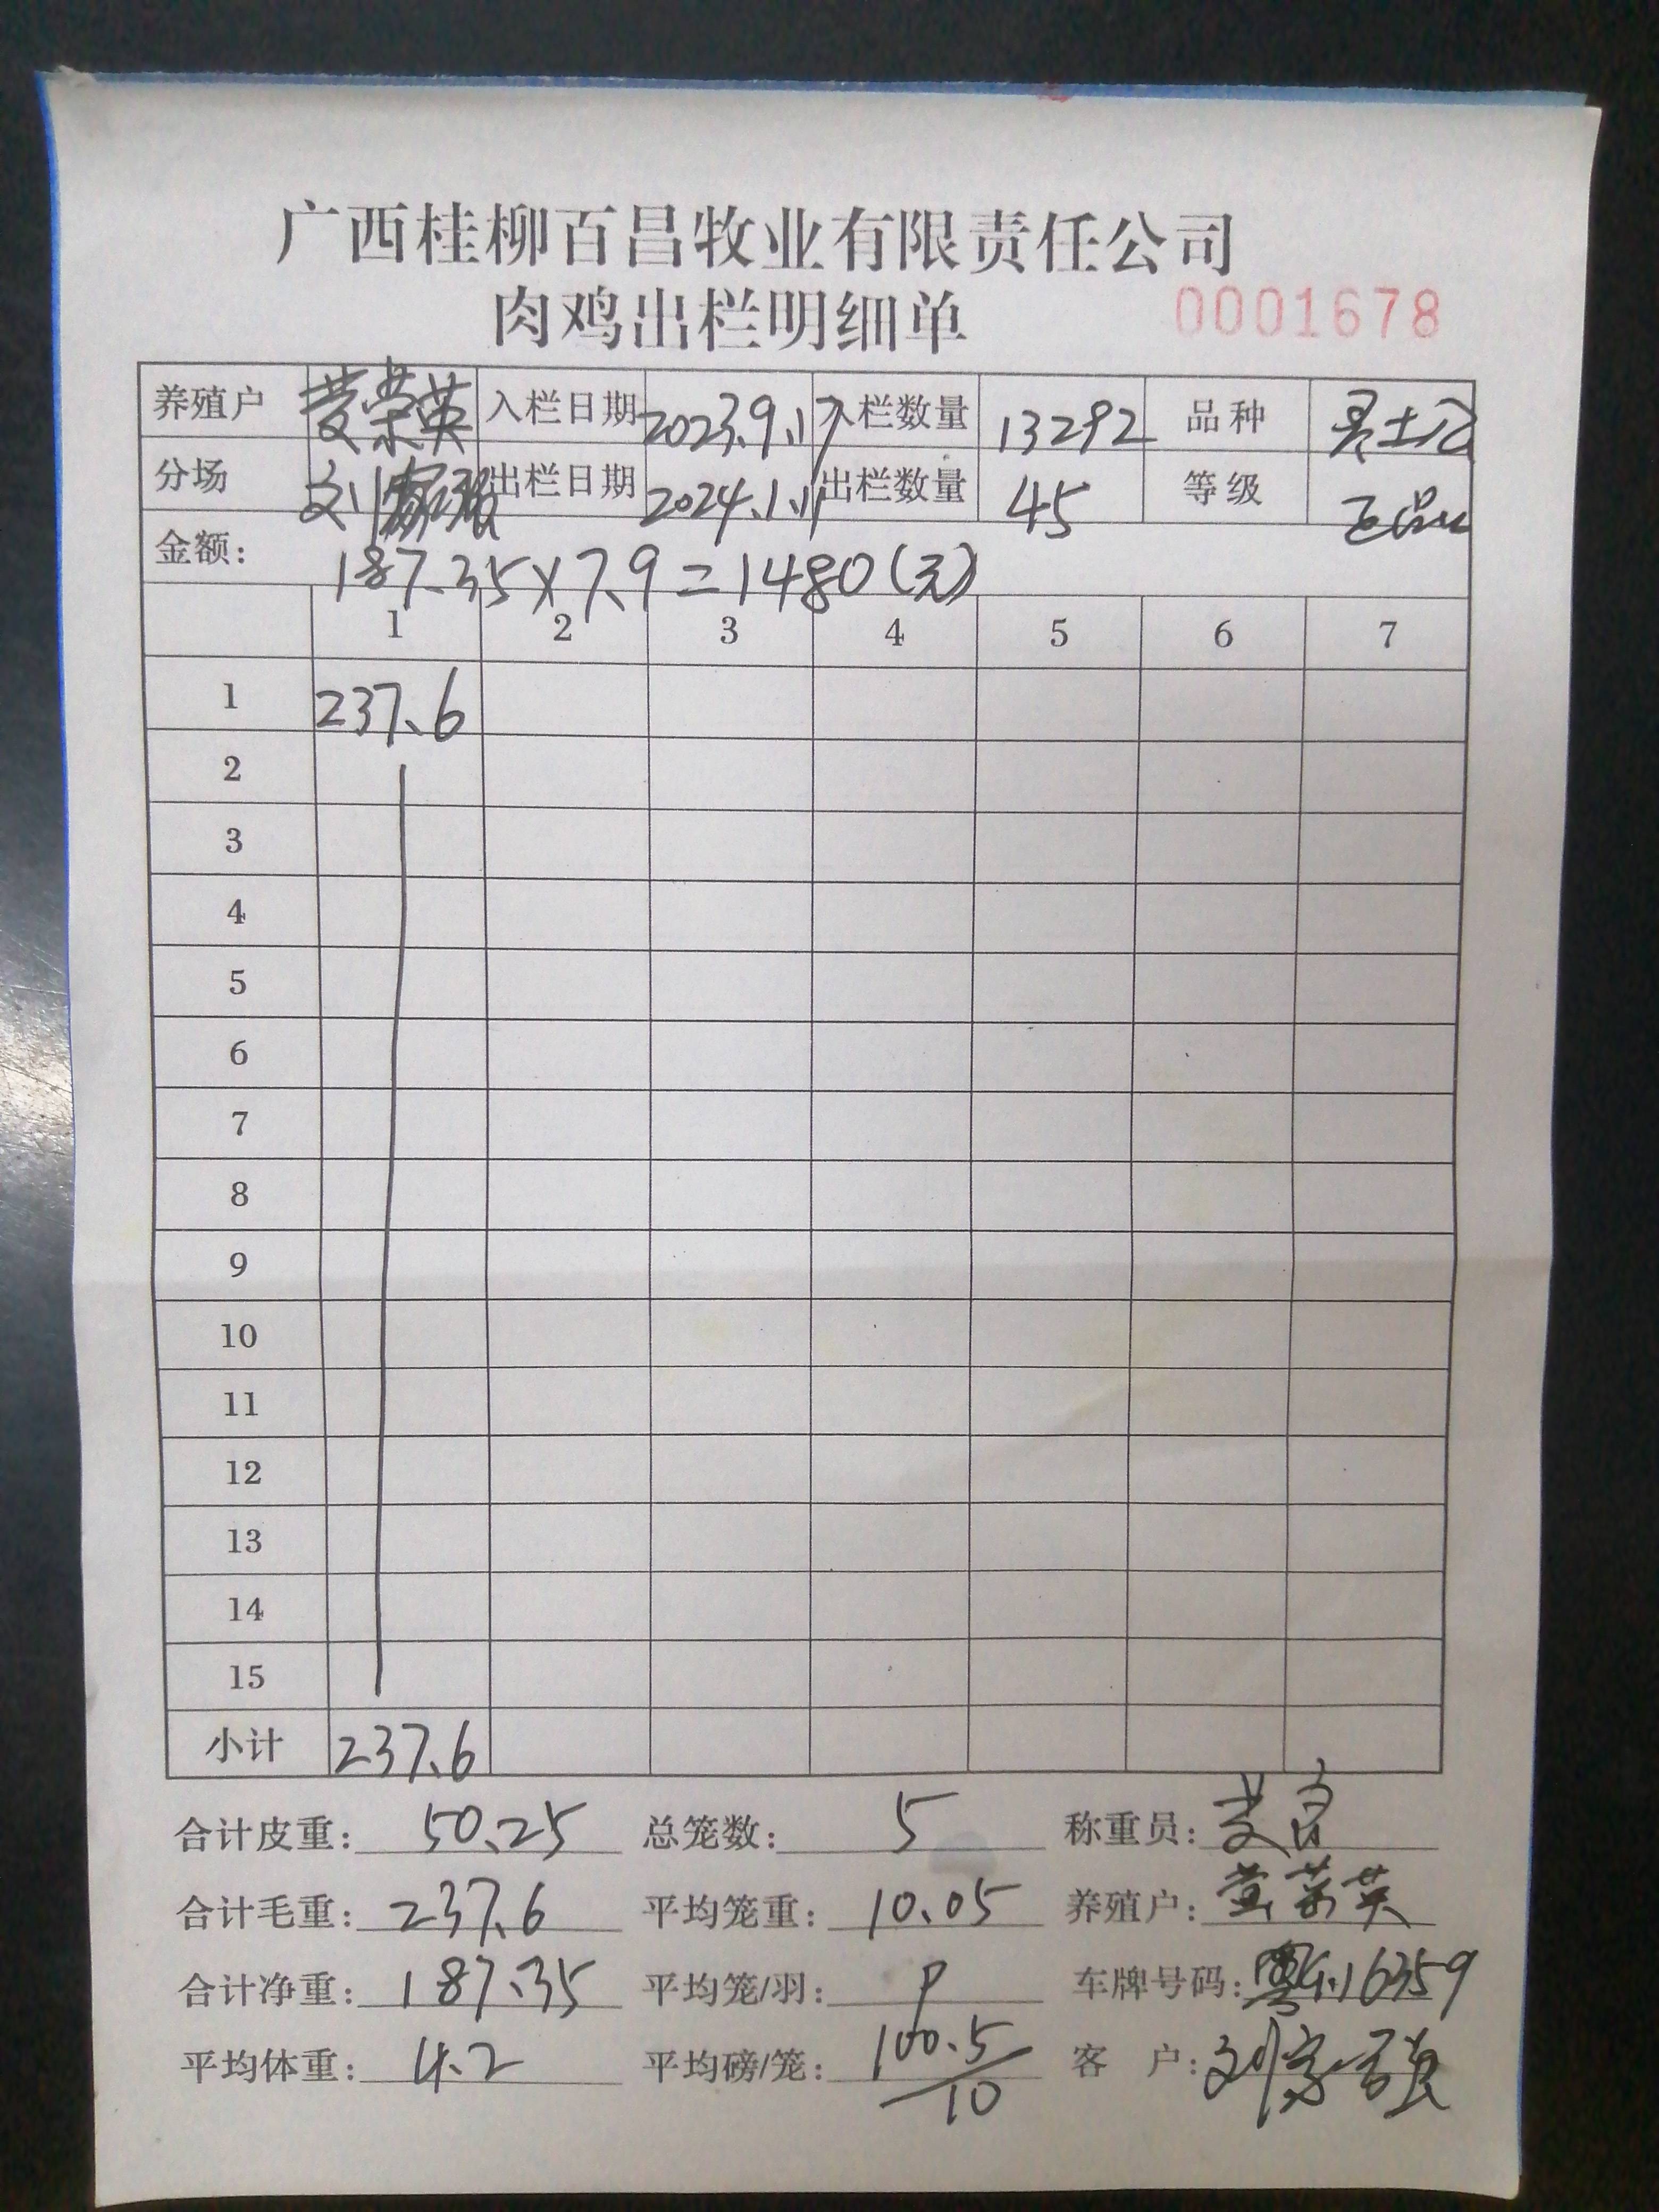 广西桂柳百昌牧业有限责任公司
肉鸡出栏明细单 0001678
养殖户 入栏日期 2023.9.17 入栏数量 13292 品种 土
分场 刘 出栏日期 2024.1.11 出栏数量 45 等级
金额: 187.35×7.9=1480(元)
1 2 3 4 5 6 7
1 237.6
2
3
4
5
6
7
8
9
10
11
12
13
14
15
小计 237.6
合计皮重: 50.25 总笼数: 5 称重员:
合计毛重: 237.6 平均笼重: 10.05 养殖户: 英
合计净重: 187.35 平均笼/羽: 9 车牌号码: 粤G.16359
平均体重: 4.2 平均磅/笼: 100.5/10 客 户: 刘家强